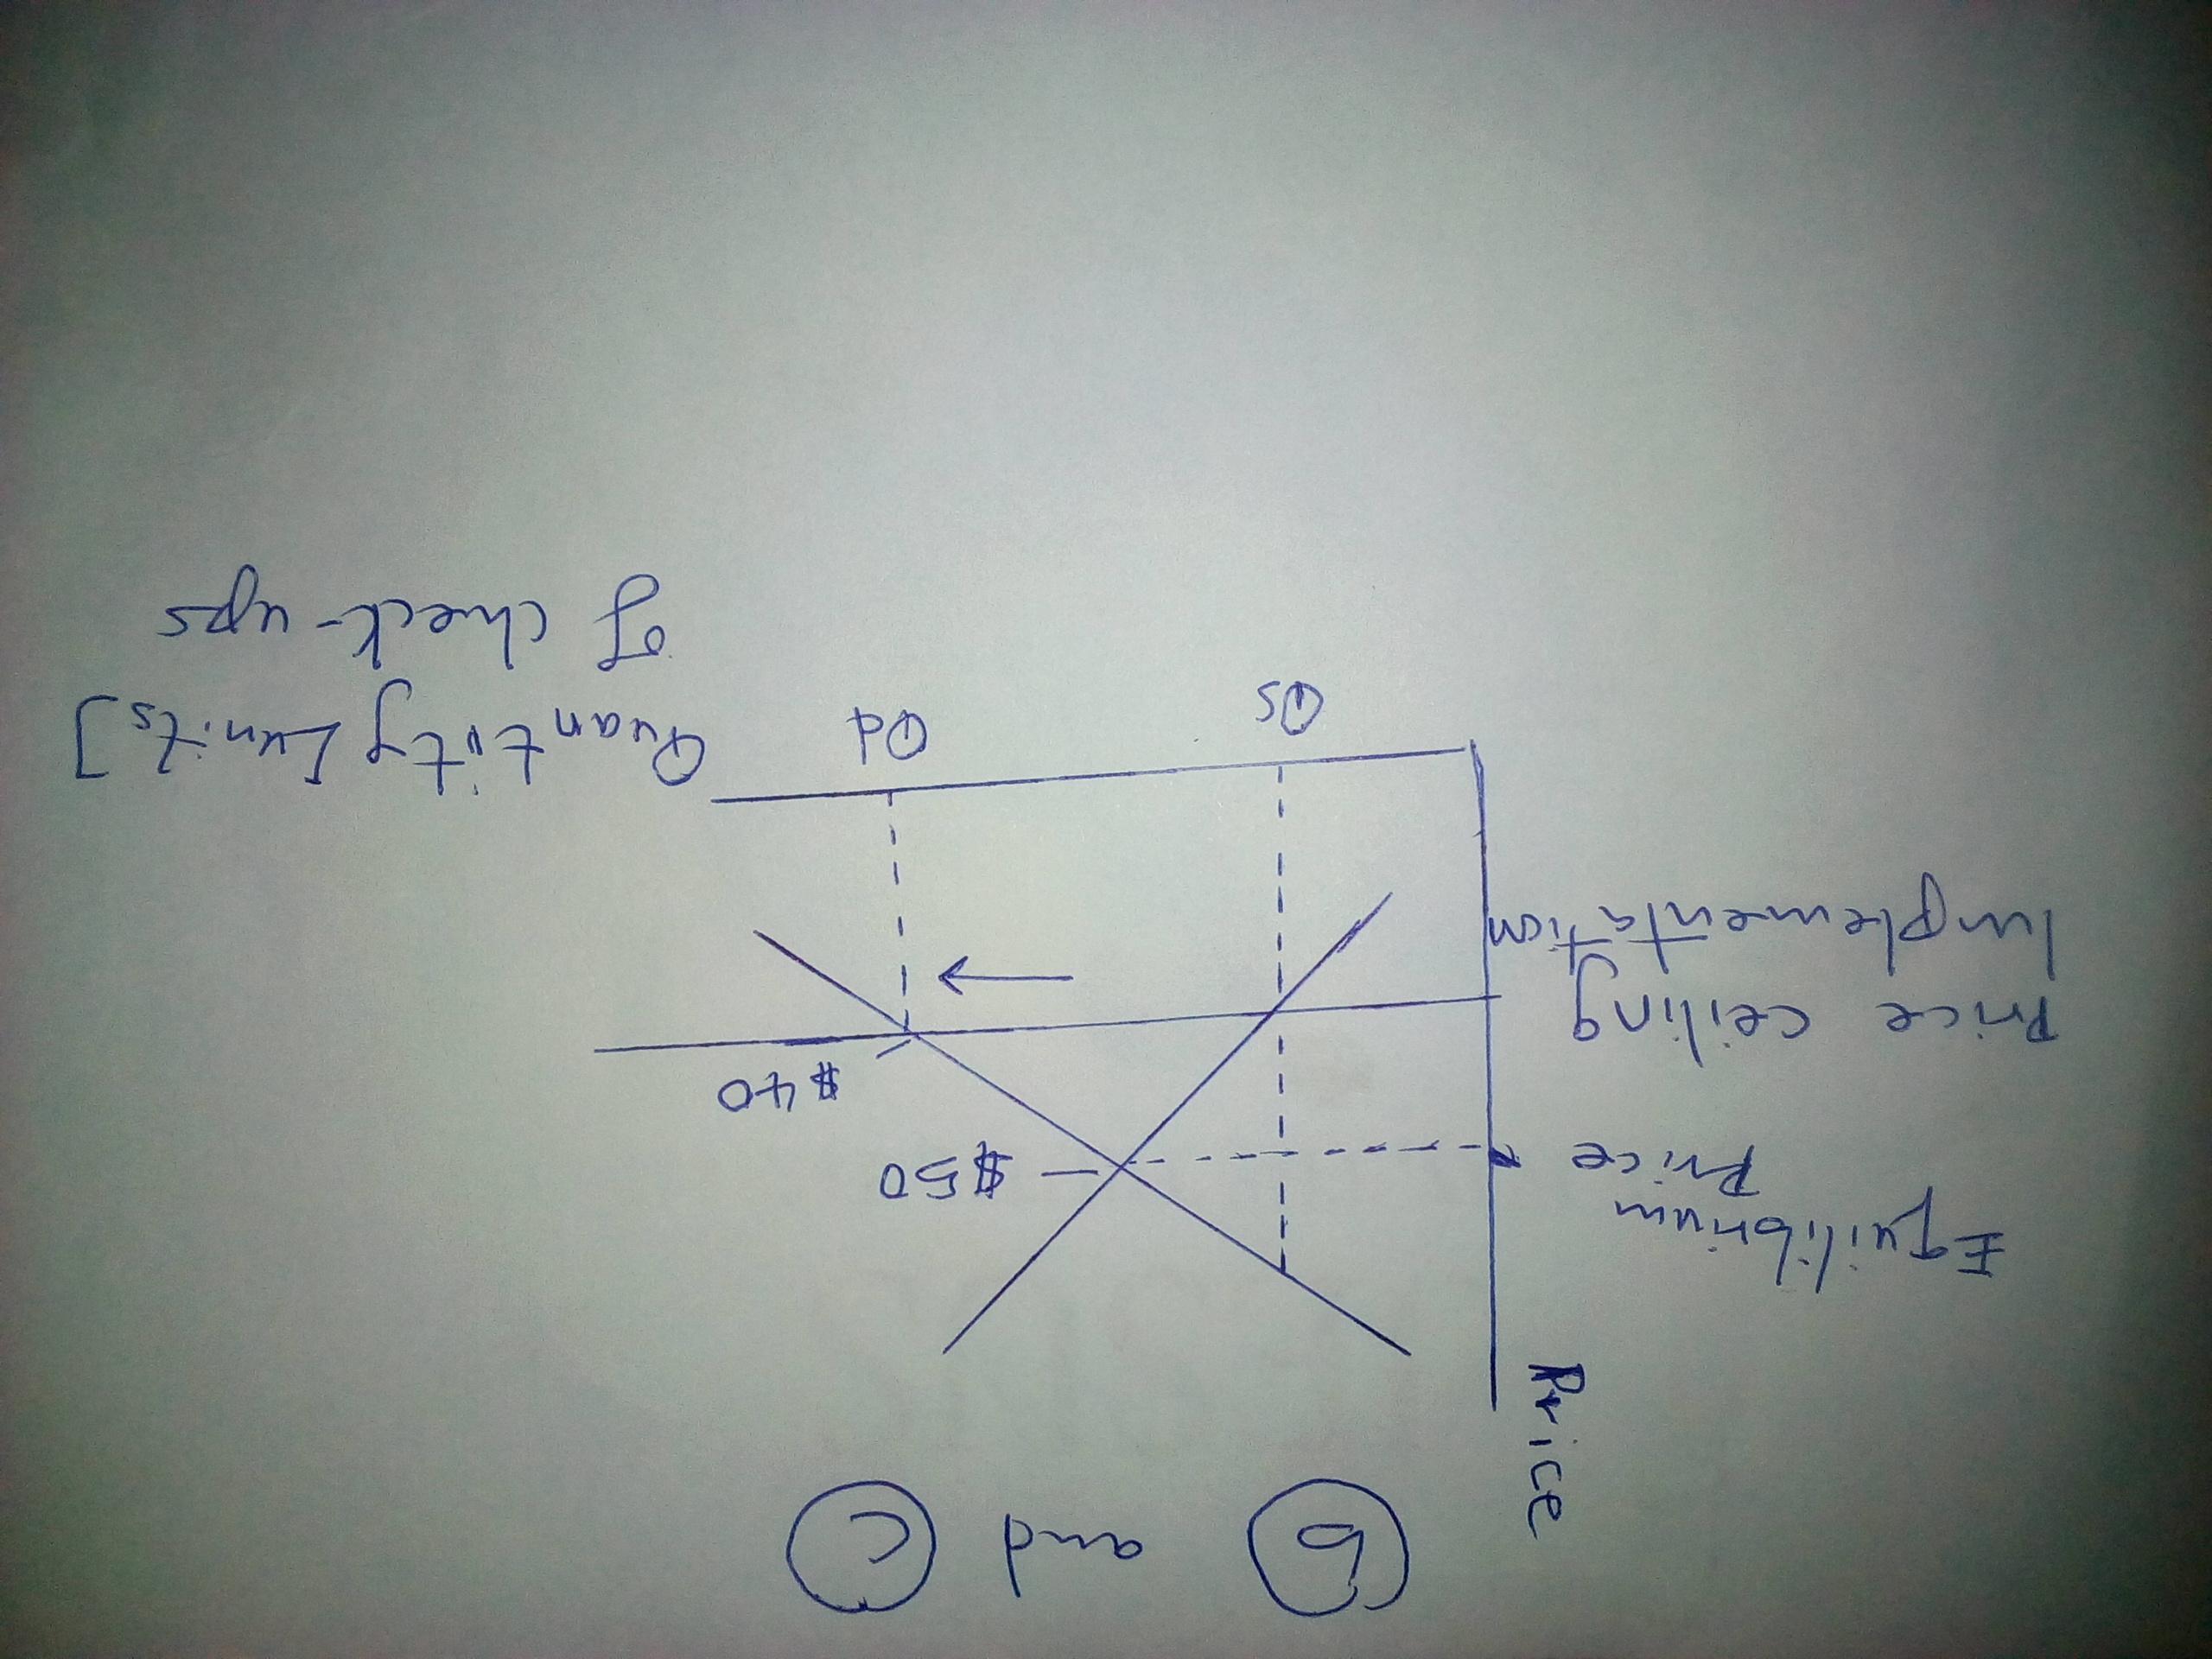 (b) and (c)
Price
Equilibrium
Price
$50
$40
Price ceiling
Implementation
Qs
Qd
Quantity [units]
of check-ups